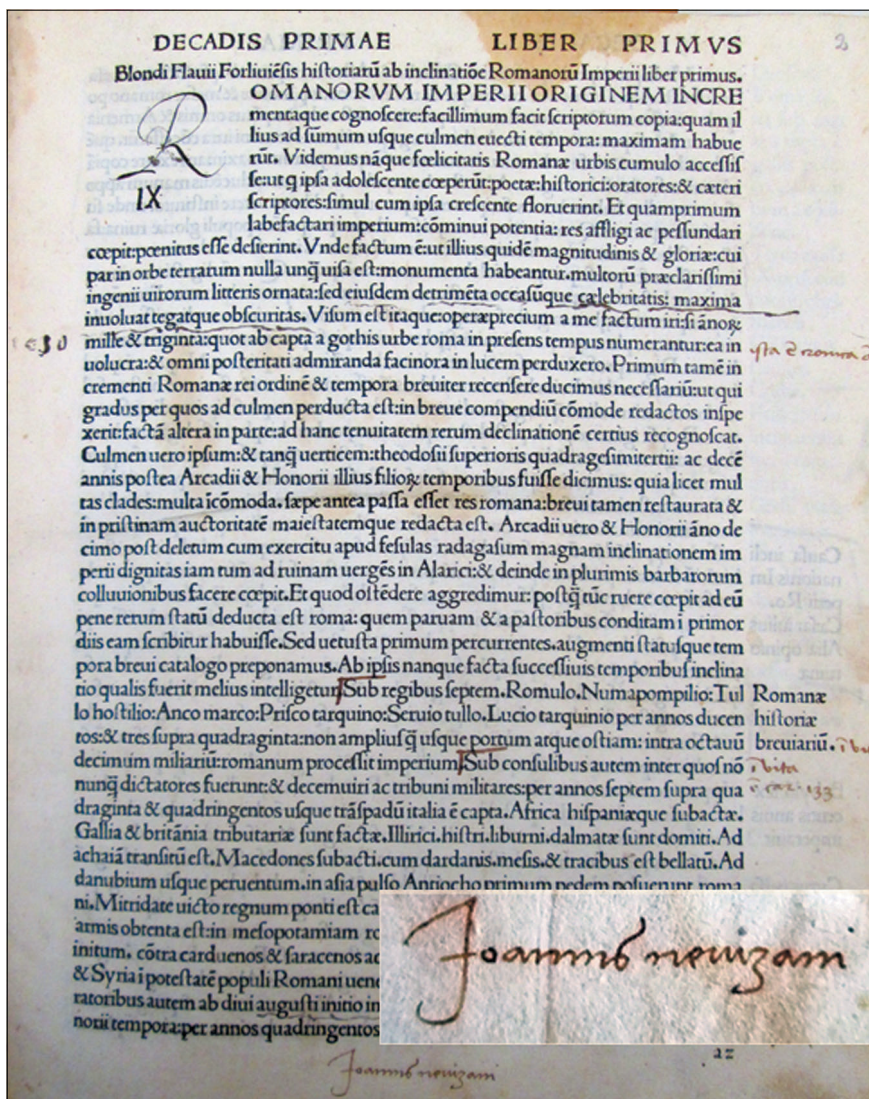 DECADIS PRIMAE LIBER PRIMVS
Blondi Flauii Forliuiēsis historiarū ab inclinatiōe Romanorū Imperii liber primus.
R OMANORVM IMPERII ORIGINEM INCRE
mentaque cognoscere: facillimum facit scriptorum copia: quam il
lius ad sūmum usque culmen euecti tempora: maximam habue
rūt. Videmus nāque fœlicitatis Romanæ urbis cumulo accessis
se: ut q ipsa adolescente cœperūt: poetæ: historici: oratores: & cæteri
IX scriptores: simul cum ipsa crescente floruerint. Et quamprimum
labefactari imperium: cōminui potentia: res affligi ac pessundari
cœpit: pœnitus esse desierint. Vnde factum ē: ut illius quidē magnitudinis & gloriæ: cui
par in orbe terrarum nulla unq̄ uisa est: monumenta habeantur. multorū præclarissimi
ingenii uirorum litteris ornata: sed eiusdem detrimēta occasūque cælebritatis: maxima
inuoluat tegatque obscuritas. Visum est itaque: operæprecium a me factum iri: si ānoꝝ
mille & triginta: quot ab capta a gothis urbe roma in presens tempus numerantur: ea in
uolucra: & omni posteritati admiranda facinora in lucem perduxero. Primum tamē in
crementi Romanæ rei ordinē & tempora breuiter recensere ducimus necessariū: ut qui
gradus per quos ad culmen perducta est: in breue compendiū cōmode redactos inspe
xerit: factā altera in parte: ad hanc tenuitatem rerum declinationē certius recognoscat.
Culmen uero ipsum: & tanq̄ uerticem: theodosii superioris quadragesimitertii: ac decē
annis postea Arcadii & Honorii illius filioꝝ temporibus fuisse dicimus: quia licet mul
tas clades: multa īcōmoda. sæpe antea passa esset res romana: breui tamen restaurata &
in pristinam auctoritatē maiestatemque redacta est. Arcadii uero & Honorii āno de
cimo post deletum cum exercitu apud fesulas radagasum magnam inclinationem im
perii dignitas iam tum ad ruinam uergēs in Alarici: & deinde in plurimis barbarorum
colluuionibus facere cœpit. Et quod ostēdere aggredimur: postq̄ tūc ruere cœpit ad eū
pene rerum statū deducta est roma: quem paruam & a pastoribus conditam ī primor
diis eam scribitur habuisse. Sed uetusta primum percurrentes. augmenti statusque tem
pora breui catalogo preponamus. Ab ipsis nanque facta successiuis temporibus inclina
tio qualis fuerit melius intelligetur. Sub regibus septem. Romulo. Numapompilio: Tul
lo hostilio: Anco marco: Prisco tarquino: Seruio tullo. Lucio tarquinio per annos ducen
tos: & tres supra quadraginta: non ampliusq̄ usque portum atque ostiam: intra octauū
decimum miliariū: romanum processit imperium. Sub consulibus autem inter quos nō
nunq̄ dictatores fuerunt: & decemuiri ac tribuni militares: per annos septem supra qua
draginta & quadringentos usque trāspadū italia ē capta. Africa hispaniæque subactæ.
Gallia & britānia tributariæ sunt factæ. Illirici. histri. liburni. dalmatæ sunt domiti. Ad
achaiā transitū est. Macedones subacti. cum dardanis. mesis. & tracibus est bellatū. Ad
danubium usque peruentum. in asia pulso Antiocho primum pedem posuerunt roma
ni. Mitridate uicto regnum ponti est ca
armis obtenta est: in mesopotamiam
initum. cōtra carduenos & saracenos
& Syria ī potestatē populi Romani
ratoribus autem ab diui augusti initio
norii tempora: per annos quadringentos
Romanæ
historiæ
breuiariū.
Joannis nevizani
Joannis nevizani
a2